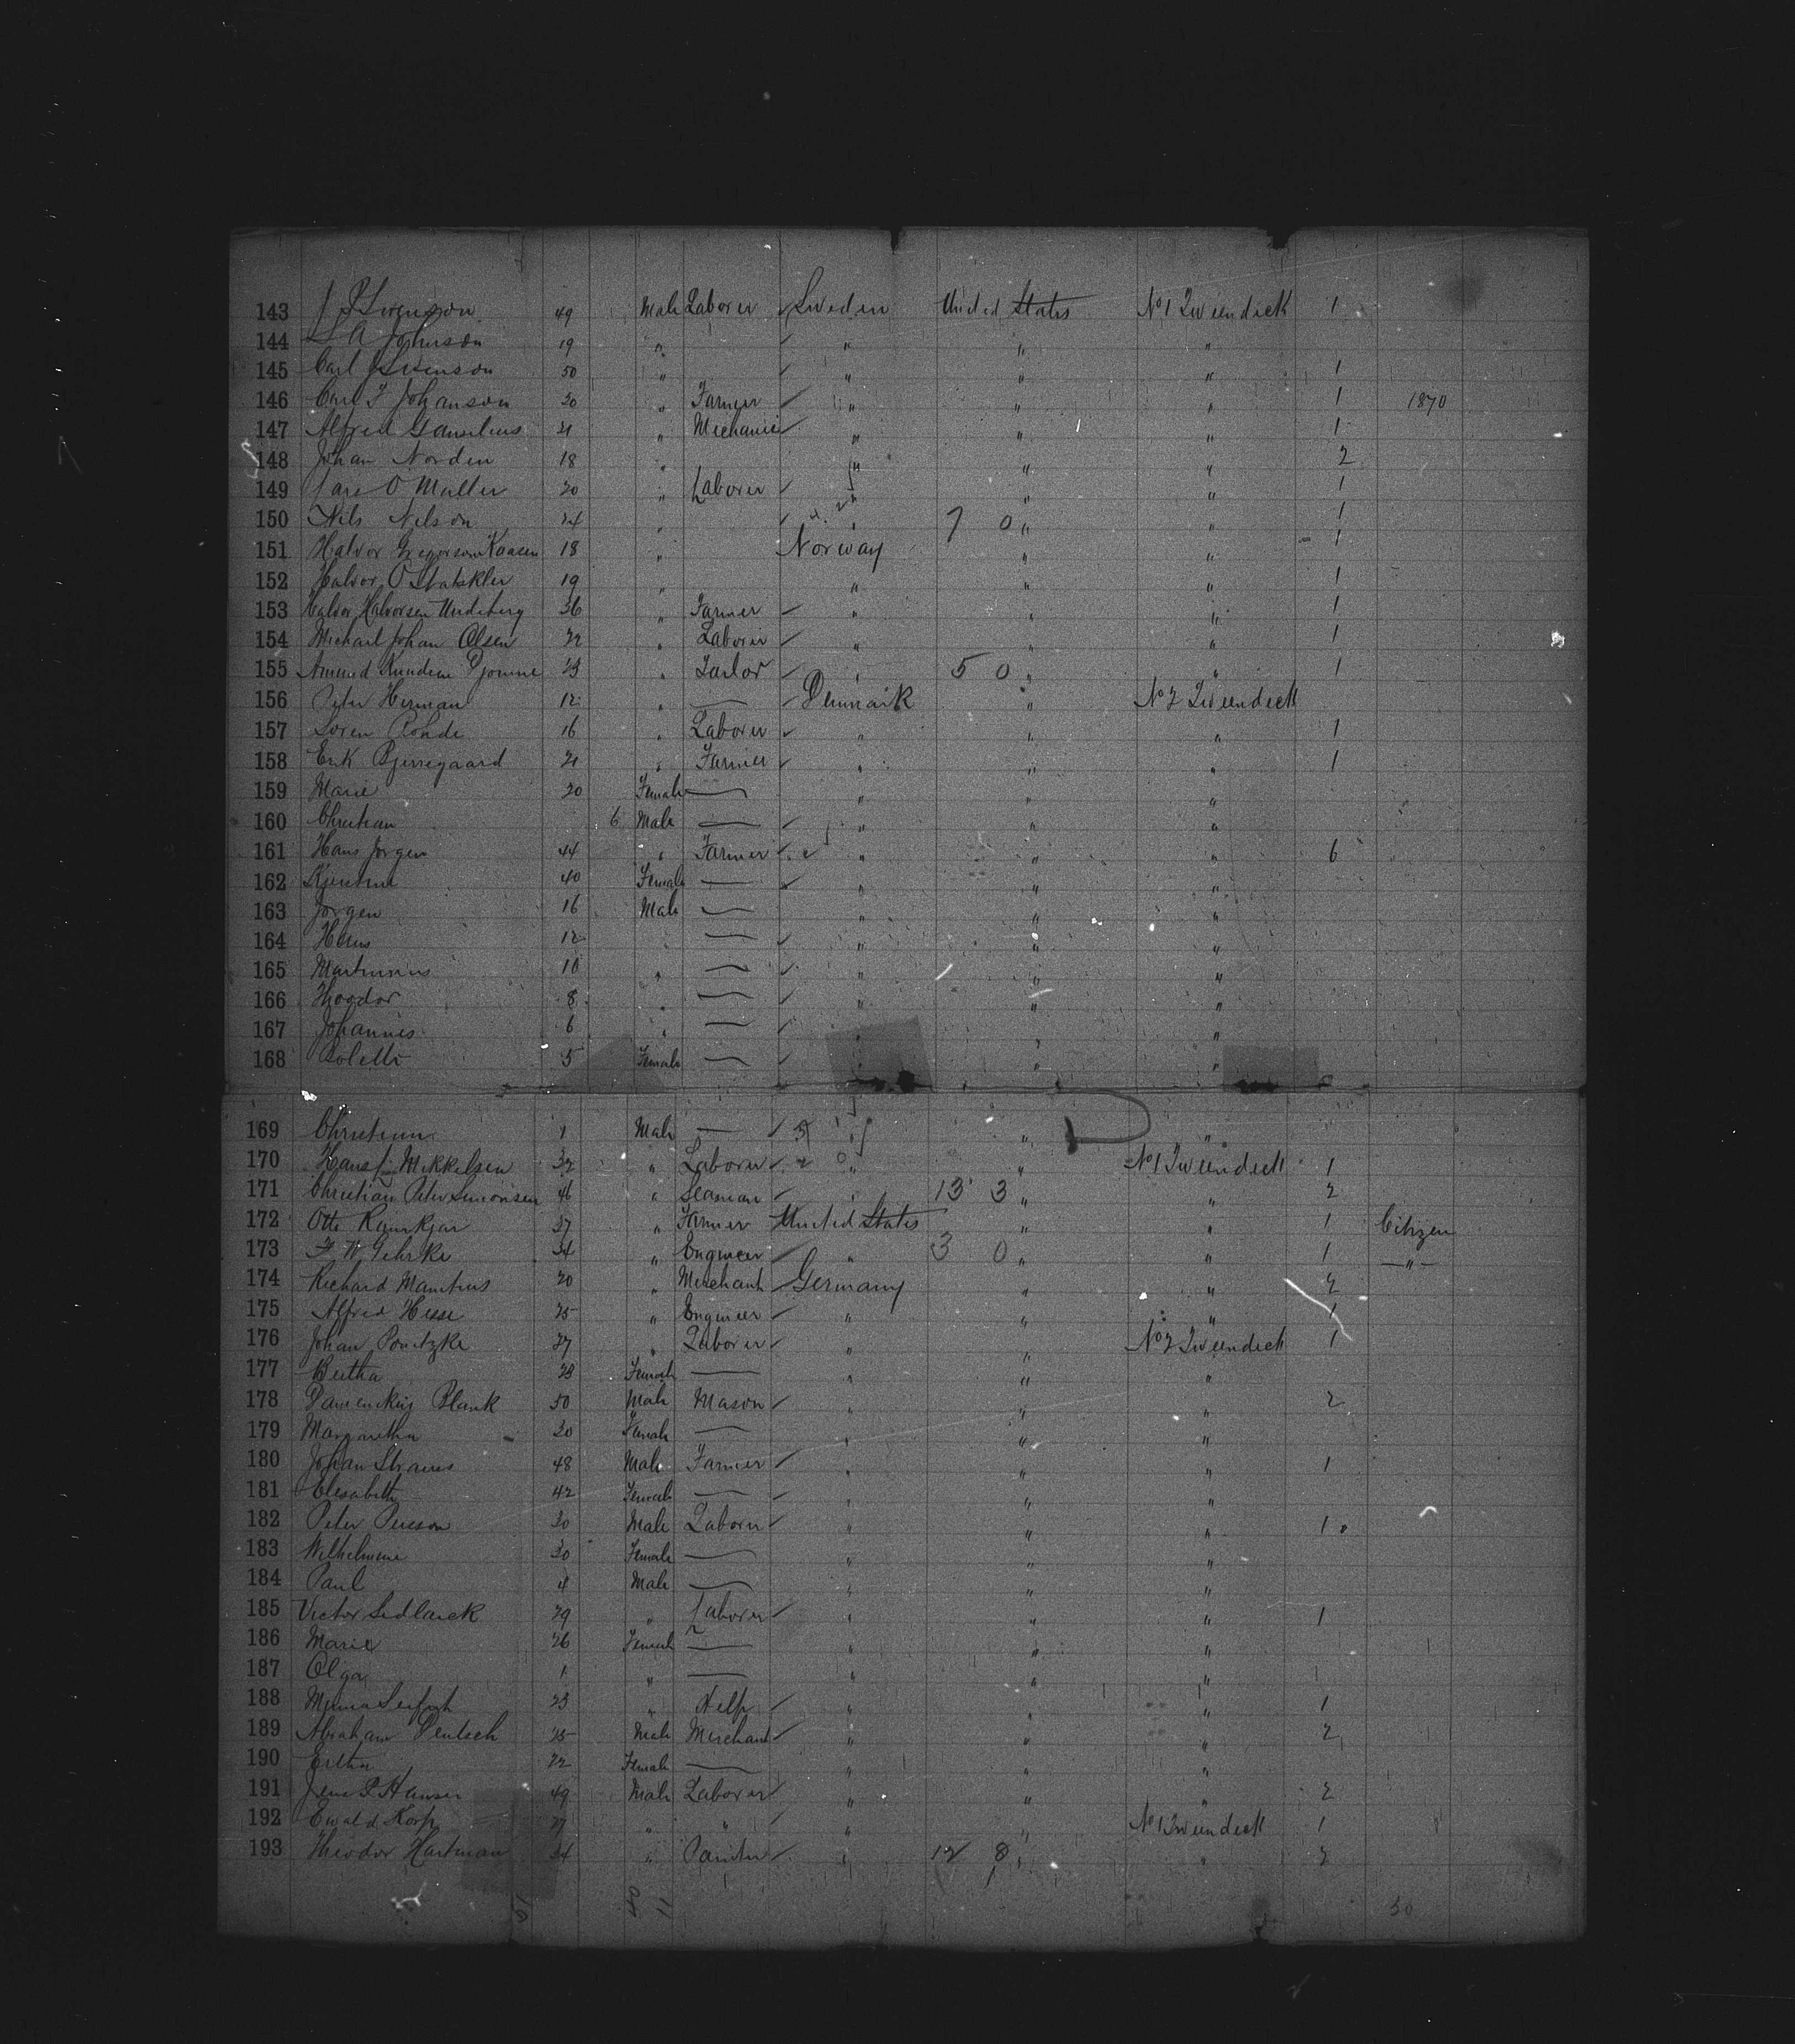 143 J P Svenson 49 Male Laborer Sweden United States No 1 Tweendeck 1
144 S A Johnson 19 " " " "
145 Carl J Svenson 50 " " " " 1
146 Carl F Johanson 30 " Farmer " " " 1 1870
147 Alfred 21 " Mechanic " " " 1
148 Johan Norden 18 " " " " 2
149 O Moller 20 " Laborer " " " 1
150 Nils Nilson 24 " " 7 0 " " 1
151 Halvor Gregorsen Kaasen 18 " Norway " " 1
152 Halvor O 19 " " " " 1
153 Halvor Halvorsen Undeberg 36 " Farmer " " " 1
154 Michael Johan Olsen 22 " Laborer " " " 1
155 Amund Knudsen 23 " Tailor " 5 0 " " 1
156 Peter Herman 12 " — Denmark " No 2 Tweendeck
157 Soren Rohde 16 " Laborer " " " 1
158 Erik Bjerregaard 21 " Farmer " " " 1
159 Marie 20 Female — " " "
160 Christian 6 Male — " " "
161 Hans Jorgen 44 " Farmer " " " 6
162 40 Female — " " "
163 Jorgen 16 Male — " " "
164 Hans 12 — " " "
165 10 " — " " "
166 Theodor 8 " — " " "
167 Johannes 6 " — " " "
168 5 Female — " " "
169 1 Male — " " "
170 Hans J Mikkelsen 32 " Laborer " " No 1 Tweendeck 1
171 Christian Peter Simonsen 46 " Seaman " 13 3 " " 2
172 Otto 37 " Farmer United States " " 1 Citizen
173 F W Gehrke 34 " Engineer " 3 0 " " 1 — " —
174 Richard 20 " Merchant Germany " " 2
175 Alfred Hesse 25 " Engineer " " " 1
176 Johan Ponitzke 27 " Laborer " " No 2 Tweendeck 1
177 Bertha 28 Female — " " "
178 Blank 50 Male Mason " " " 2
179 Margaretha 30 Female — " " "
180 Johan Strauss 48 Male Farmer " " " 1
181 Elisabeth 42 Female — " " "
182 Peter Person 30 Male Laborer " " " 1
183 Wilhelmine 30 Female — " " "
184 Paul 4 Male — " " "
185 Victor 29 " Laborer " " " 1
186 Marie 26 Female — " " "
187 Olga 1 " — " " "
188 23 " Help " " " 1
189 Abraham Deutsch 25 Male Merchant " " " 2
190 22 Female — " " "
191 Jens P Hansen 49 Male Laborer " " " 2
192 Ewald Korp 27 " " " " No 1 Tweendeck 1
193 Theodor Hartman 34 " Painter " 12 8 " " 2